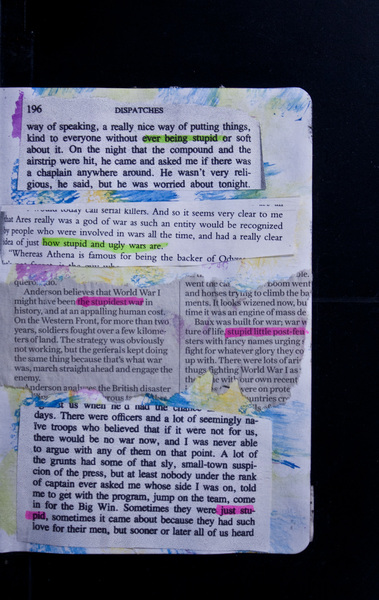 196
DISPATCHES
way of speaking, a really nice way of putting things,
kind to everyone without ever being stupid or soft
about it. On the night that the compound and the
airstrip were hit, he came and asked me if there was
a chaplain anywhere around. He wasn't very reli-
gious, he said, but he was worried about tonight.
would today call serial killers. And so it seems very clear to me
that Ares really was a god of war as such an entity would be recognized
by people who were involved in wars all the time, and had a really clear
idea of just how stupid and ugly wars are.
"Whereas Athena is famous for being the backer of
Anderson believes that World War I
might have been the stupidest war in
history, and at an appalling human cost.
On the Western Front, for more than two
years, soldiers fought over a few kilome-
ters of land. The strategy was obviously
not working, but the generals kept doing
the same thing because that's what war
was, march straight ahead and engage the
enemy.
Anderson analyses the British disaster
went
boom went
and horses trying to climb the ba
ments. It looks wizened now, bu
time it was an engine of mass de
Baux was built for war; war w
ture of life, stupid little post-feu
sters with fancy names urging
fight for whatever glory they co
up with. There were lots of
thugs fighting World War I as
with our own recent
were on
countries
us when he'd had the chance
days. There were officers and a lot of seemingly na-
ive troops who believed that if it were not for us,
there would be no war now, and I was never able
to argue with any of them on that point. A lot of
the grunts had some of that sly, small-town suspi-
cion of the press, but at least nobody under the rank
of captain ever asked me whose side I was on, told
me to get with the program, jump on the team, come
in for the Big Win. Sometimes they were just stu-
pid, sometimes it came about because they had such
love for their men, but sooner or later all of us heard